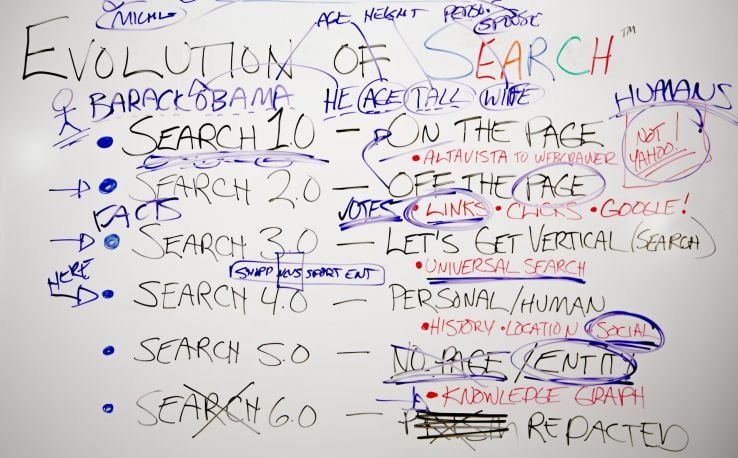 AGE HEIGHT
SPOUSE
EVOLUTION OF SEARCH™
BARACK OBAMA HE AGE TALL WIFE HUMANS
• SEARCH 1.0 — ON THE PAGE
• ALTAVISTA TO WEBCRAWLER
NOT!
YAHOO!
• SEARCH 2.0 — OFF THE PAGE
FACTS VOTES • LINKS • CLICKS • GOOGLE!
• SEARCH 3.0 — LET'S GET VERTICAL (SEARCH)
HERE NEWS SPORT ENT • UNIVERSAL SEARCH
• SEARCH 4.0 — PERSONAL/HUMAN
• HISTORY • LOCATION • SOCIAL
• SEARCH 5.0 — NO PAGE/ENTITY
• KNOWLEDGE GRAPH
• SEARCH 6.0 — REDACTED